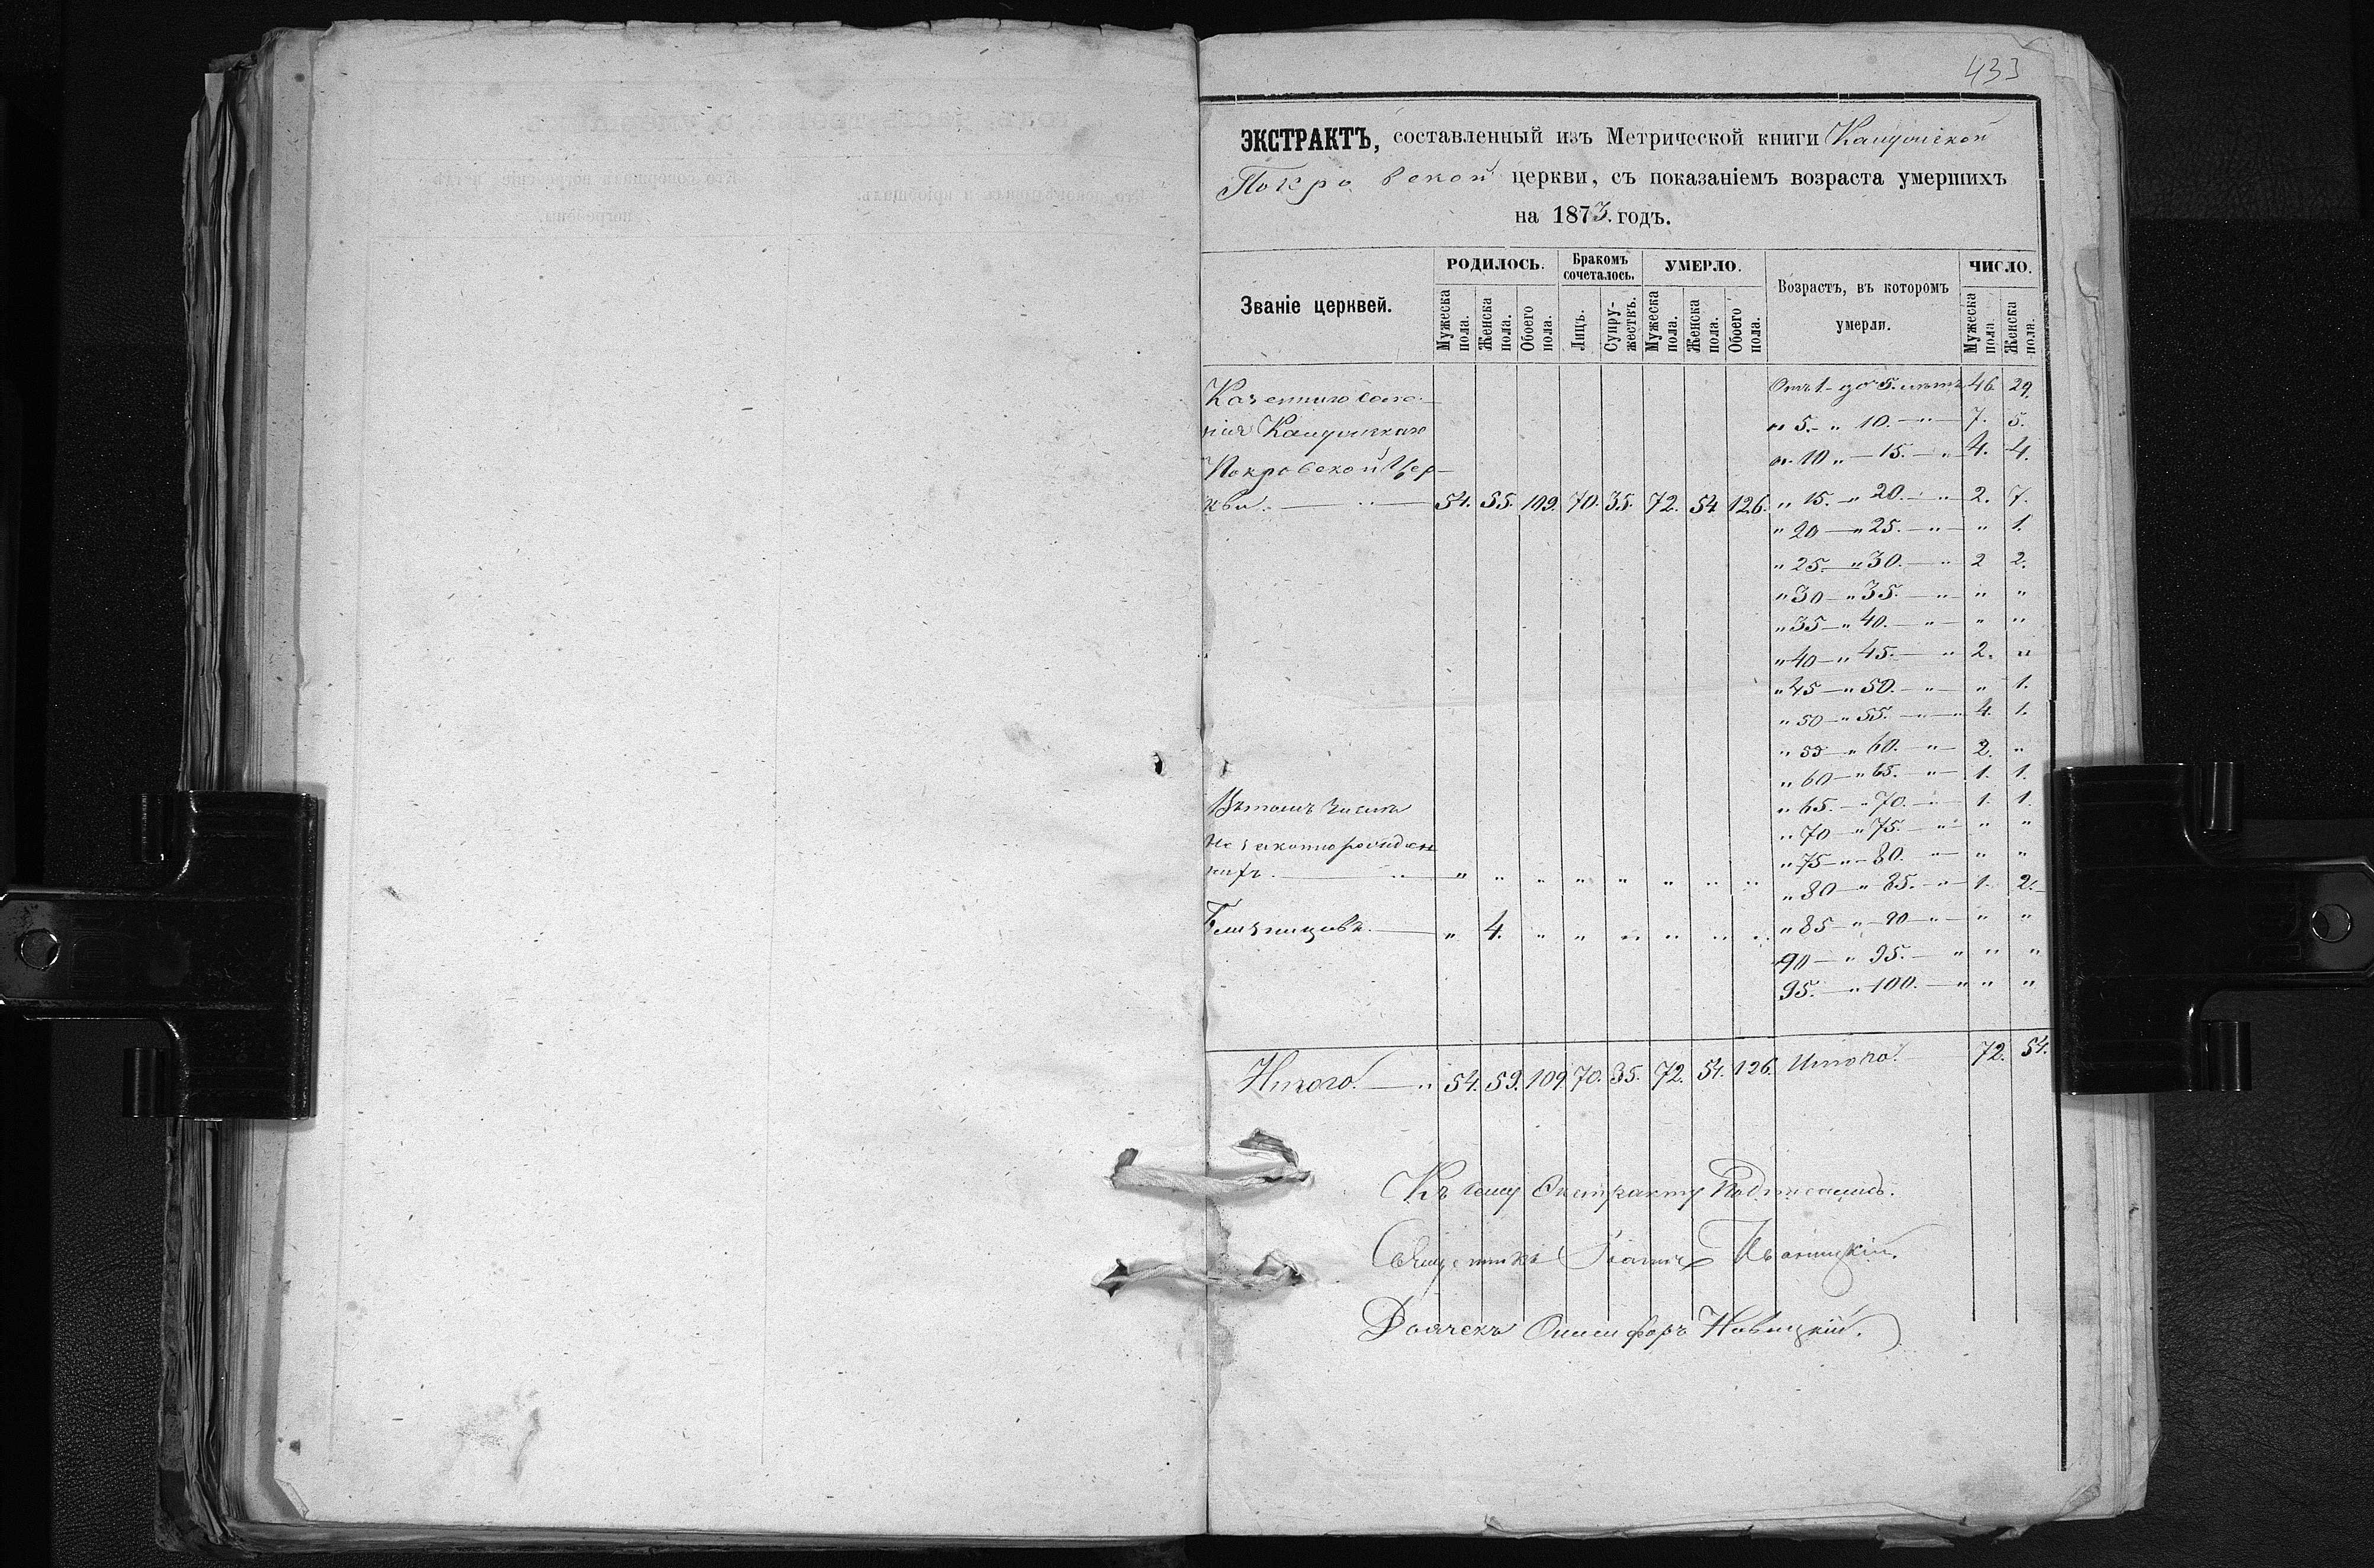 433
ЭКСТРАКТЪ, составленный изъ Метрической книги
Покровской церкви, съ показаніемъ возраста умершихъ
на 1873. годъ.
Званіе церквей.
РОДИЛОСЬ.
Бракомъ сочеталось.
УМЕРЛО.
Возрастъ, въ которомъ умерли.
ЧИСЛО.
Мужеска пола.
Женска пола.
Обоего пола.
Лицъ.
Супружествъ.
Мужеска пола.
Женска пола.
Обоего пола.
Мужеска пола
Женска пола.
Покровской Цер-
кви. 54. 55. 109. 70. 35. 72. 54 126.
Отъ 1 - до 5. лѣтъ 46 29.
" 5. - " 10. - " - 7. 5.
" 10 " - 15. - " 4. 4.
" 15. - " 20. - " 2. 7.
" 20 - " 25. - " - " 1.
" 25. - " 30. - " 2 2.
" 30 - " 35. - " - " "
" 35 - " 40. - " - " "
" 40 - " 45. - " 2. "
" 45 - " 50. - " - " 1.
" 50 - " 55. - " - 4. 1.
" 55 - " 60. - " - 2. "
" 60 - " 65. - " - 1. 1.
" 65. - " 70. - " - 1. 1.
" 70 - " 75. - " - " "
" 75 - " - 80. - " - " "
" 80 - " 85. - " - 1. 2.
" 85 - " - 90 - " - " "
" 90 - " 95. - " " "
95. - " 100. - " " "
Въ томъ числѣ
незаконнорожден
ныхъ. " " " " " " " "
Близнецовъ. " 4. " " " " " "
Итого. 54. 59. 109 70. 35. 72. 54. 126. Итого. 72. 54.
Къ сему Экстракту Подписались.
Священникъ Іоаннъ Иваницкій.
Дьячекъ Онисифоръ Новицкій.